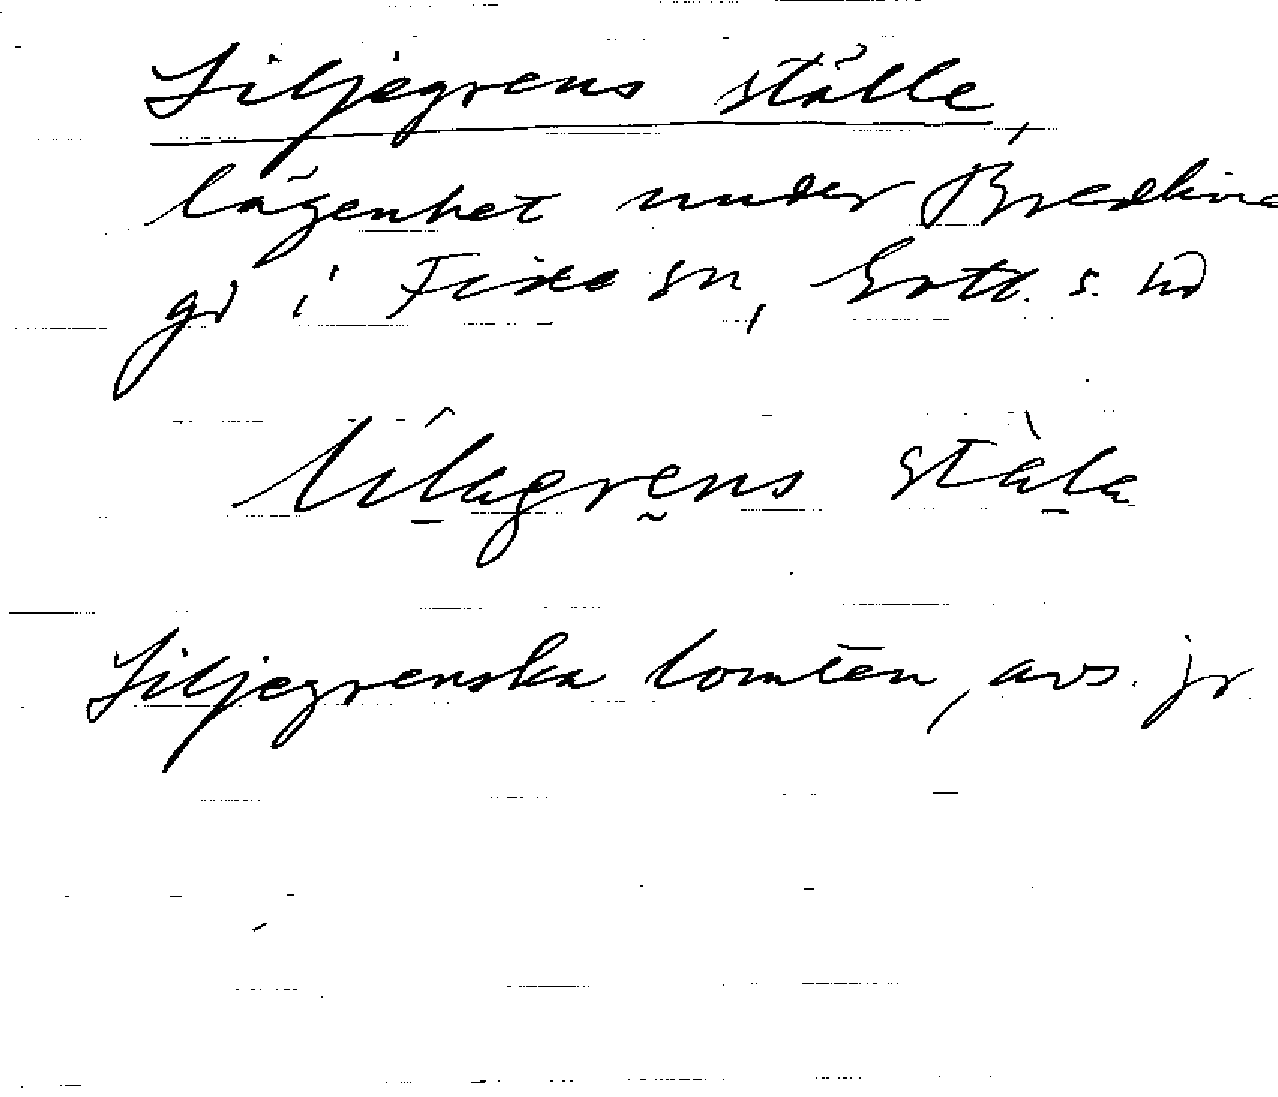 Liljegrens ställe,
lägenhet under Bredkind
gd i Fide sn, Gotl. s. hd
lilagrens stàla
Liljegrenska tomten, avs. jr